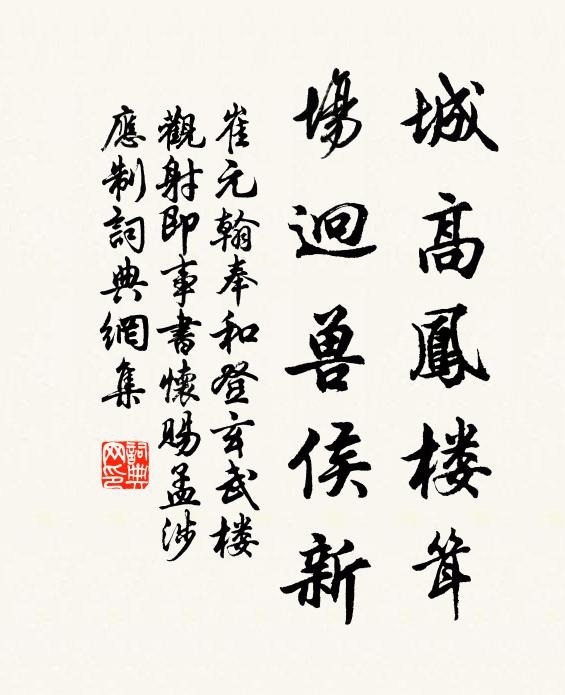 城高鳳楼耸
場迥兽侯新
崔元翰奉和登玄武楼
觀射即事書懷賜孟涉
應制詞典網集
詞典
网印